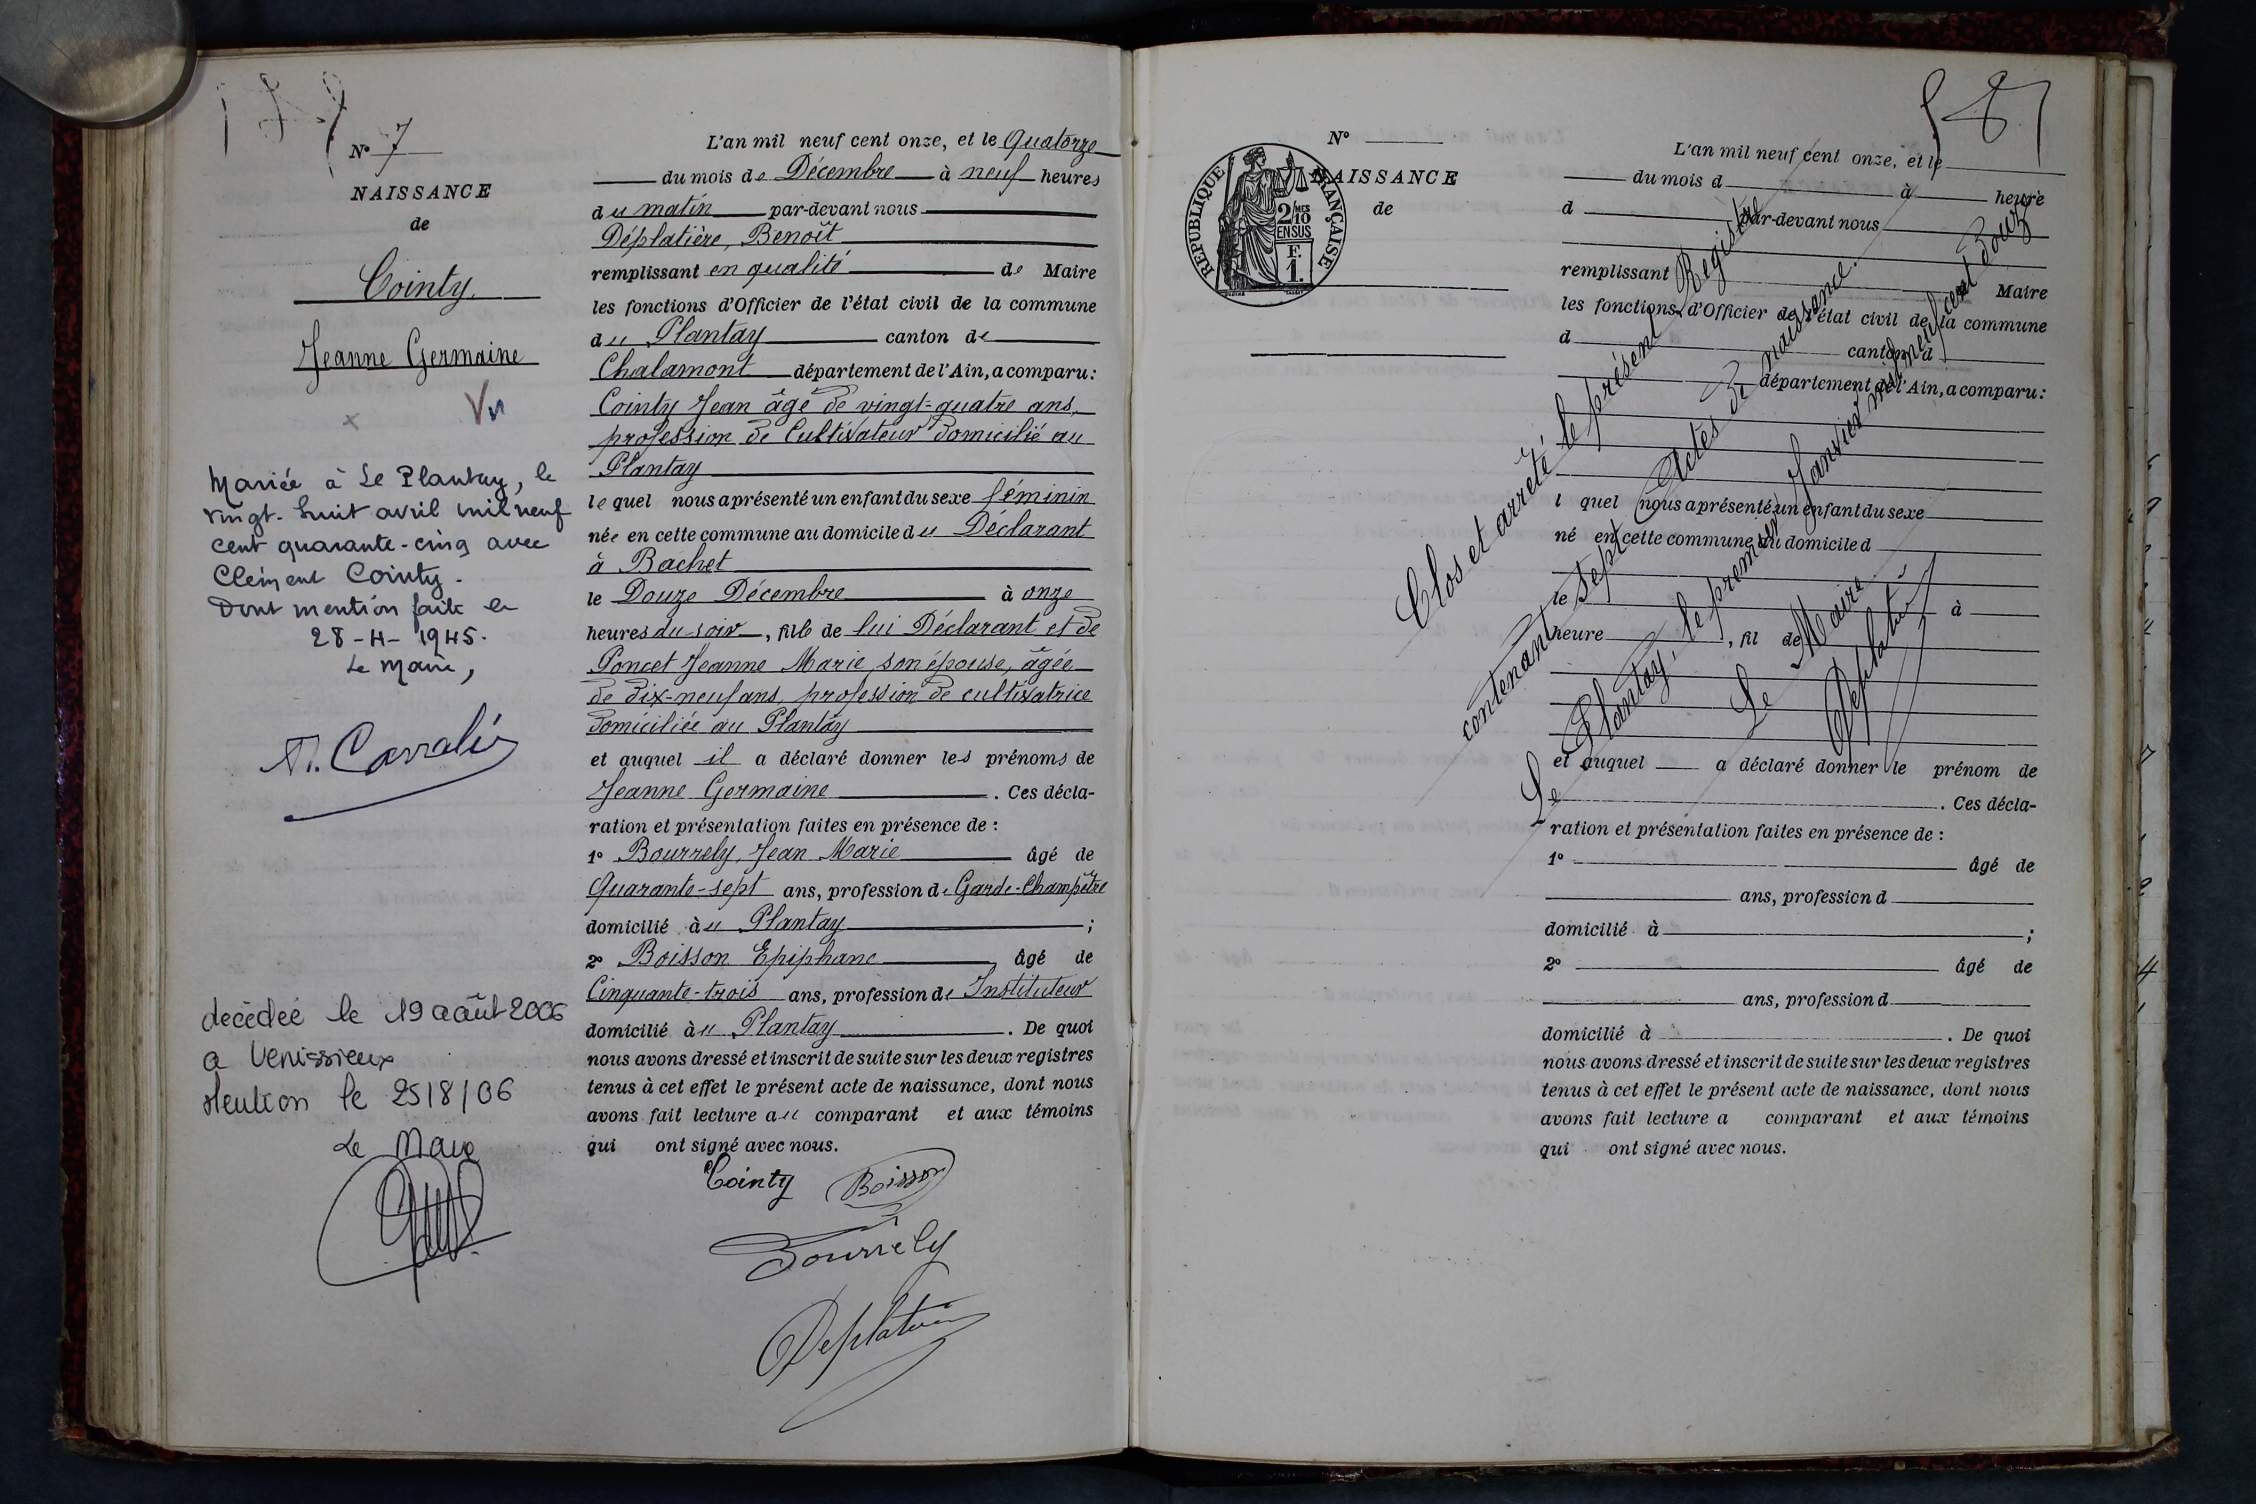 N° 7
NAISSANCE
de
Cointy
Jeanne Germaine
Vu
Mariée à Le Plantay, le
vingt-huit avril mil neuf
cent quarante-cinq avec
Clément Cointy.
Dont mention faite le
28-4-1945.
Le Maire,
décédée le 19 août 2006
a Venissieux
Mention le 25/8/06
Le Maire
L'an mil neuf cent onze, et le Quatorze
du mois de Décembre à neuf heures
du matin par-devant nous
Déplatière, Benoît
remplissant en qualité de Maire
les fonctions d'Officier de l'état civil de la commune
du Plantay canton de
Chalamont département de l'Ain, a comparu:
Cointy Jean âgé de vingt-quatre ans,
profession de Cultivateur domicilié au
Plantay
lequel nous a présenté un enfant du sexe féminin
née en cette commune au domicile du Déclarant
à Bachet
le Douze Décembre à onze
heures du soir, fille de lui Déclarant et de
Poncet Jeanne Marie, son épouse, âgée
de dix-neuf ans, profession de cultivatrice
domiciliée au Plantay
et auquel il a déclaré donner les prénoms de
Jeanne Germaine . Ces décla-
ration et présentation faites en présence de :
1° Bourrely, Jean Marie âgé de
Quarante-sept ans, profession de Garde-Champêtre
domicilié au Plantay ;
2° Boisson Epiphane âgé de
Cinquante-trois ans, profession de Instituteur
domicilié au Plantay . De quoi
nous avons dressé et inscrit de suite sur les deux registres
tenus à cet effet le présent acte de naissance, dont nous
avons fait lecture au comparant et aux témoins
qui ont signé avec nous.
Cointy Boisson
Bourrely
Deplatière
N°
NAISSANCE
de
RÉPUBLIQUE FRANÇAISE
2/10 MES
EN SUS
F.
1.
L'an mil neuf cent onze, et le
du mois d à heure
d par-devant nous
remplissant Maire
les fonctions d'Officier de l'état civil de la commune
d canton d
département de l'Ain, a comparu:
l quel nous a présenté un enfant du sexe
né en cette commune au domicile d
le à
heure , fil de
et auquel a déclaré donner le prénom de
. Ces décla-
ration et présentation faites en présence de :
1° âgé de
ans, profession d
domicilié à ;
2° âgé de
ans, profession d
domicilié à . De quoi
nous avons dressé et inscrit de suite sur les deux registres
tenus à cet effet le présent acte de naissance, dont nous
avons fait lecture a comparant et aux témoins
qui ont signé avec nous.
Clos et arrêté le présent Registre
contenant Sept Actes de naissance.
Le Plantay, le premier Janvier mil neuf cent Douze
Le Maire
Deplatière